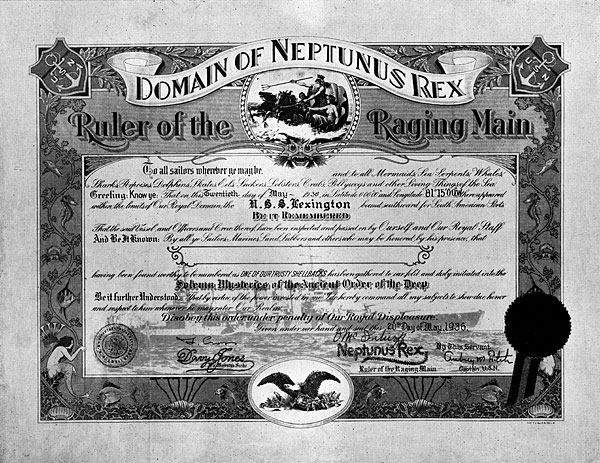 DOMAIN OF NEPTUNUS REX
Ruler of the Raging Main
To all sailors wherever ye may be, and to all Mermaids, Sea Serpents, Whales,
Sharks, Porpoises, Dolphins, Skates, Eels, Suckers, Lobsters, Crabs, Pollywogs and other Living Things of the Sea
Greeting: Know ye: That on this Twentieth day of May 1936, in Latitude 00000 and Longitude 81°15'00W there appeared
within the limits of Our Royal Domain the U.S.S. Lexington bound southward for South American Ports
BE IT REMEMBERED
That the said Vessel and Officers and Crew thereof have been inspected and passed on by Ourself and Our Royal Staff
And Be It Known: By all ye Sailors, Marines, Land Lubbers and others who may be honored by his presence, that
having been found worthy to be numbered as ONE OF OUR TRUSTY SHELLBACKS has been gathered to our fold and duly initiated into the
Solemn Mysteries of the Ancient Order of the Deep
Be it further Understood: That by virtue of the power invested in me I do hereby command all my subjects to show due honor
and respect to him wherever he may enter Our Realm.
Disobey this order under penalty of Our Royal Displeasure.
Given under our hand and seal this 20th Day of May, 1936.
Davy Jones
His Majesty's Scribe
Neptunus Rex
Ruler of the Raging Main
By Our Servant
Captain, U.S.N.